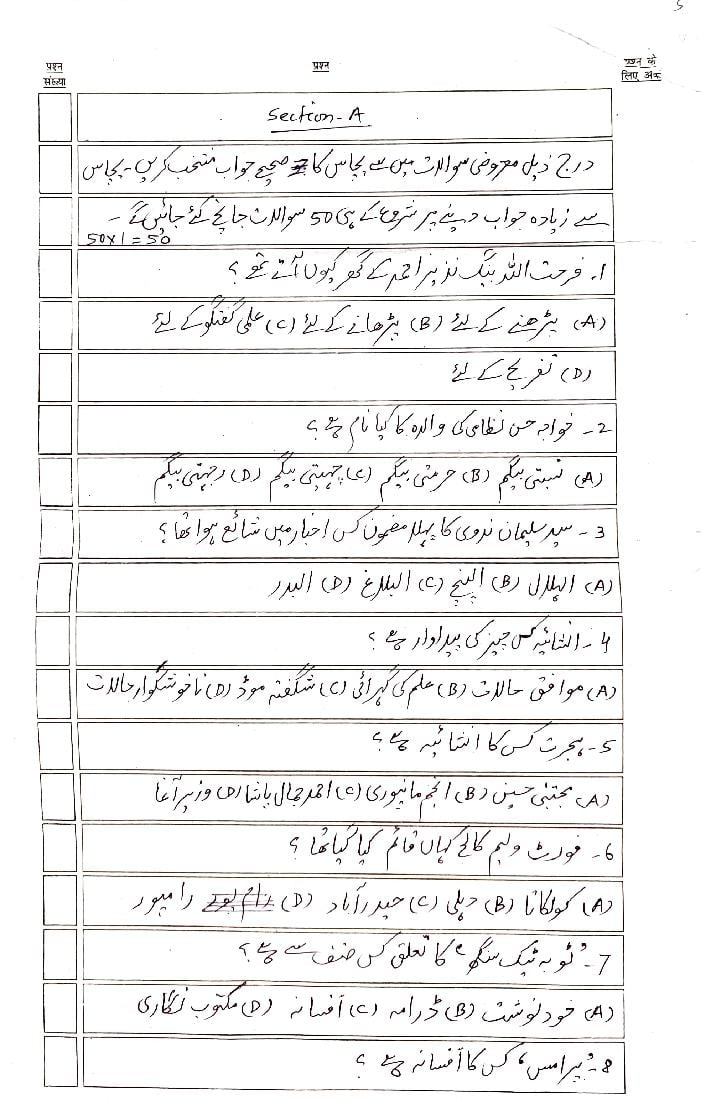 5
प्रश्न संख्या
प्रश्न
प्रश्न के लिए अंक
Section-A
درج ذیل معروضی سوالات میں سے پچاس کا صحیح جواب منتخب کریں۔ پچاس
سے زیادہ جواب دینے پر شروع کے ہی 50 سوالات جانچے جائیں گے۔
50x1=50
1. فرحت اللہ بیگ نذیر احمد کے گھر کیوں آتے تھے؟
(A) پڑھنے کے لئے (B) پڑھانے کے لئے (C) علمی گفتگو کے لئے
(D) تفریح کے لئے
2- خواجہ حسن نظامی کی والدہ کا کیا نام ہے؟
(A) نسبتی بیگم (B) حرمتی بیگم (C) چہیتی بیگم (D) رحمتی بیگم
3- سید سلیمان ندوی کا پہلا مضمون کس اخبار میں شائع ہوا تھا؟
(A) الہلال (B) الپنچ (C) البلاغ (D) البدر
4- انشائیہ کس چیز کی پیداوار ہے؟
(A) موافق حالات (B) علم کی گہرائی (C) شگفتہ موڈ (D) ناخوشگوار حالات
5- ہجرت کس کا انشائیہ ہے؟
(A) مجتبیٰ حسین (B) انجم مانپوری (C) احمد جمال پاشا (D) وزیر آغا
6- فورٹ ولیم کالج کہاں قائم کیا گیا تھا؟
(A) کولکاتا (B) دہلی (C) حیدرآباد (D) رامپور
7- 'ٹوبہ ٹیک سنگھ' کا تعلق کس صنف سے ہے؟
(A) خودنوشت (B) ڈرامہ (C) افسانہ (D) مکتوب نگاری
8- 'پرامس' کس کا افسانہ ہے؟